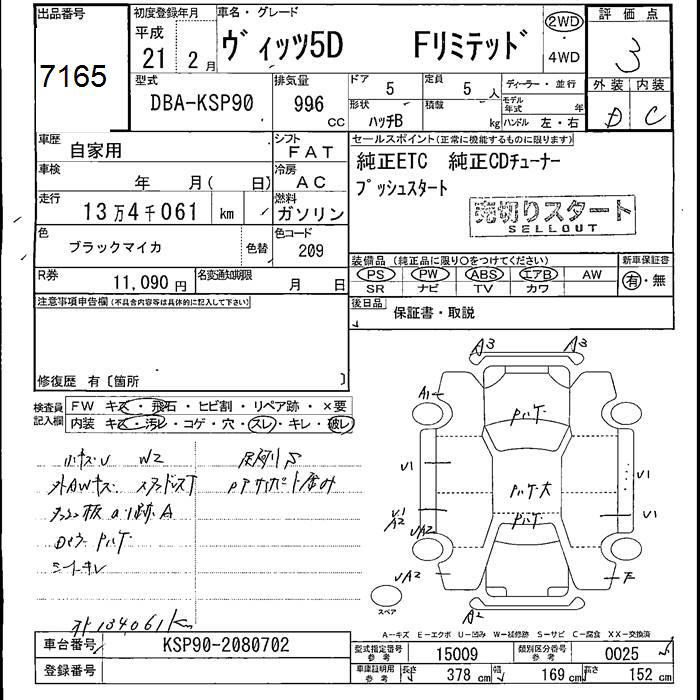 出品番号
7165
初度登録年月
平成
21 2 月
車名・グレード
ヴィッツ5D Fリミテッド
2WD
・
4WD
評価点
3
外装 内装
D C
型式
DBA-KSP90
排気量
996
cc
ドア
5
定員
5 人
形状
ハッチB
積載
kg
ディーラー・並行
モデル
年式 年
ハンドル 左・右
車歴
自家用
シフト
FAT
車検
年 月( 日)
冷房
AC
走行
13万4千061 km
燃料
ガソリン
色
ブラックマイカ
色替
色コード
209
R券
11,090 円
名変通知期限
月 日
セールスポイント(正常に機能するものに限ります)
純正ETC 純正CDチューナー
プッシュスタート
売切りスタート
SELLOUT
装備品 (純正品に限り○をつけてください)
PS PW ABS エアB AW
SR ナビ TV カワ
新車保証書
有・無
後日品
保証書・取説
注意事項申告欄(不具合内容等は具体的に記入して下さい)
修復歴 有〔箇所 〕
検査員
記入欄
FW キズ・飛石・ヒビ割・リペア跡・×要
内装 キズ・汚レ・コゲ・穴・スレ・キレ・破レ
小キズU W2
外AWキズ
シートキレ
外134061km
A3 A3
A1
パケ
U1
パケ大
U1
U1
A2
UA2
パケ
U1
UA2
F
A2
スペア
A-キズ E-エクボ U-凹み W-補修跡 S-サビ C-腐食 XX-交換済
車台番号
KSP90-2080702
登録番号
型式指定番号
参考
15009
類別区分番号
参考
0025
車庫証明用
参考
長さ
378 cm
幅
169 cm
高さ
152 cm